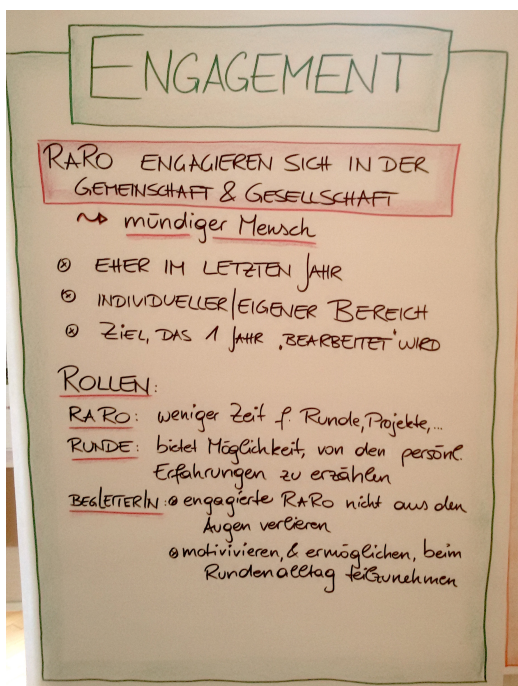 ENGAGEMENT
RARO ENGAGIEREN SICH IN DER
GEMEINSCHAFT & GESELLSCHAFT
mündiger Mensch
EHER IM LETZTEN JAHR
INDIVIDUELLER/EIGENER BEREICH
ZIEL, DAS 1 JAHR "BEARBEITET" WIRD
ROLLEN:
RARO: weniger Zeit f. Runde, Projekte,...
RUNDE: bietet Möglichkeit, von den persönl.
Erfahrungen zu erzählen
BEGLEITERIN: engagierte RARO nicht aus den
Augen verlieren
motivivieren, & ermöglichen, beim
Rundenalltag teilzunehmen